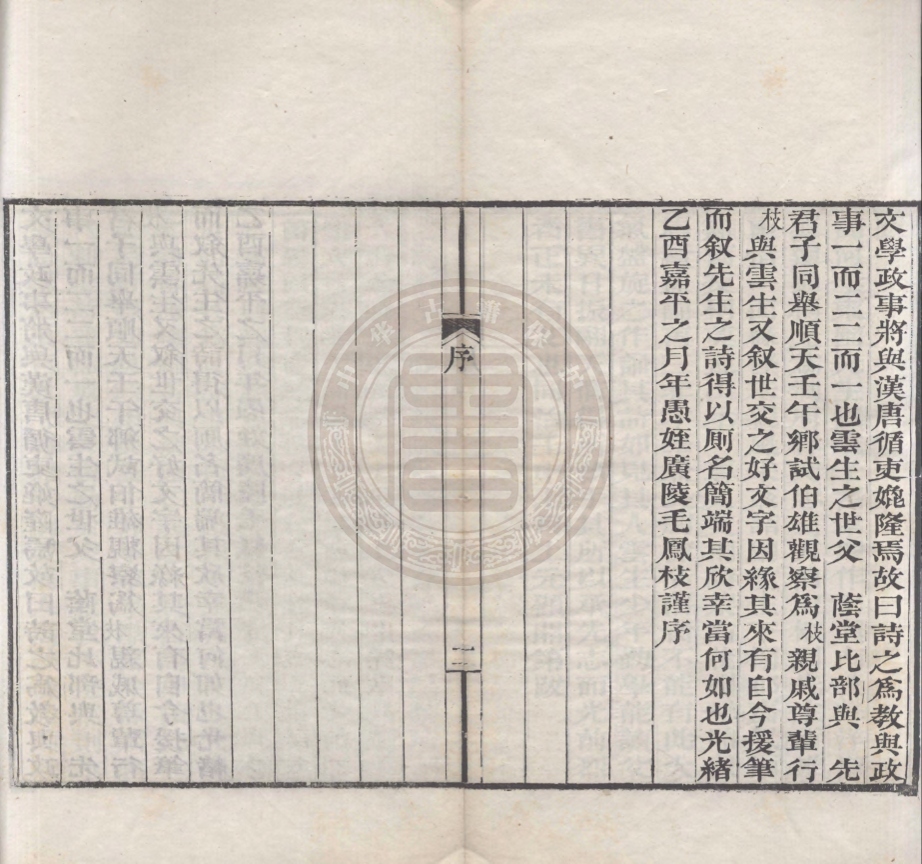 文學政事將與漢唐循吏媲隆焉故曰詩之爲教與政
事一而二二而一也雲生之世父　蔭堂比部與　先
君子同舉順天壬午鄉試伯雄觀察爲枝親戚尊輩行
枝與雲生又叙世交之好文字因緣其來有自今援筆
而叙先生之詩得以厠名簡端其欣幸當何如也光緒
乙酉嘉平之月年愚姪廣陵毛鳳枝謹序
序
二